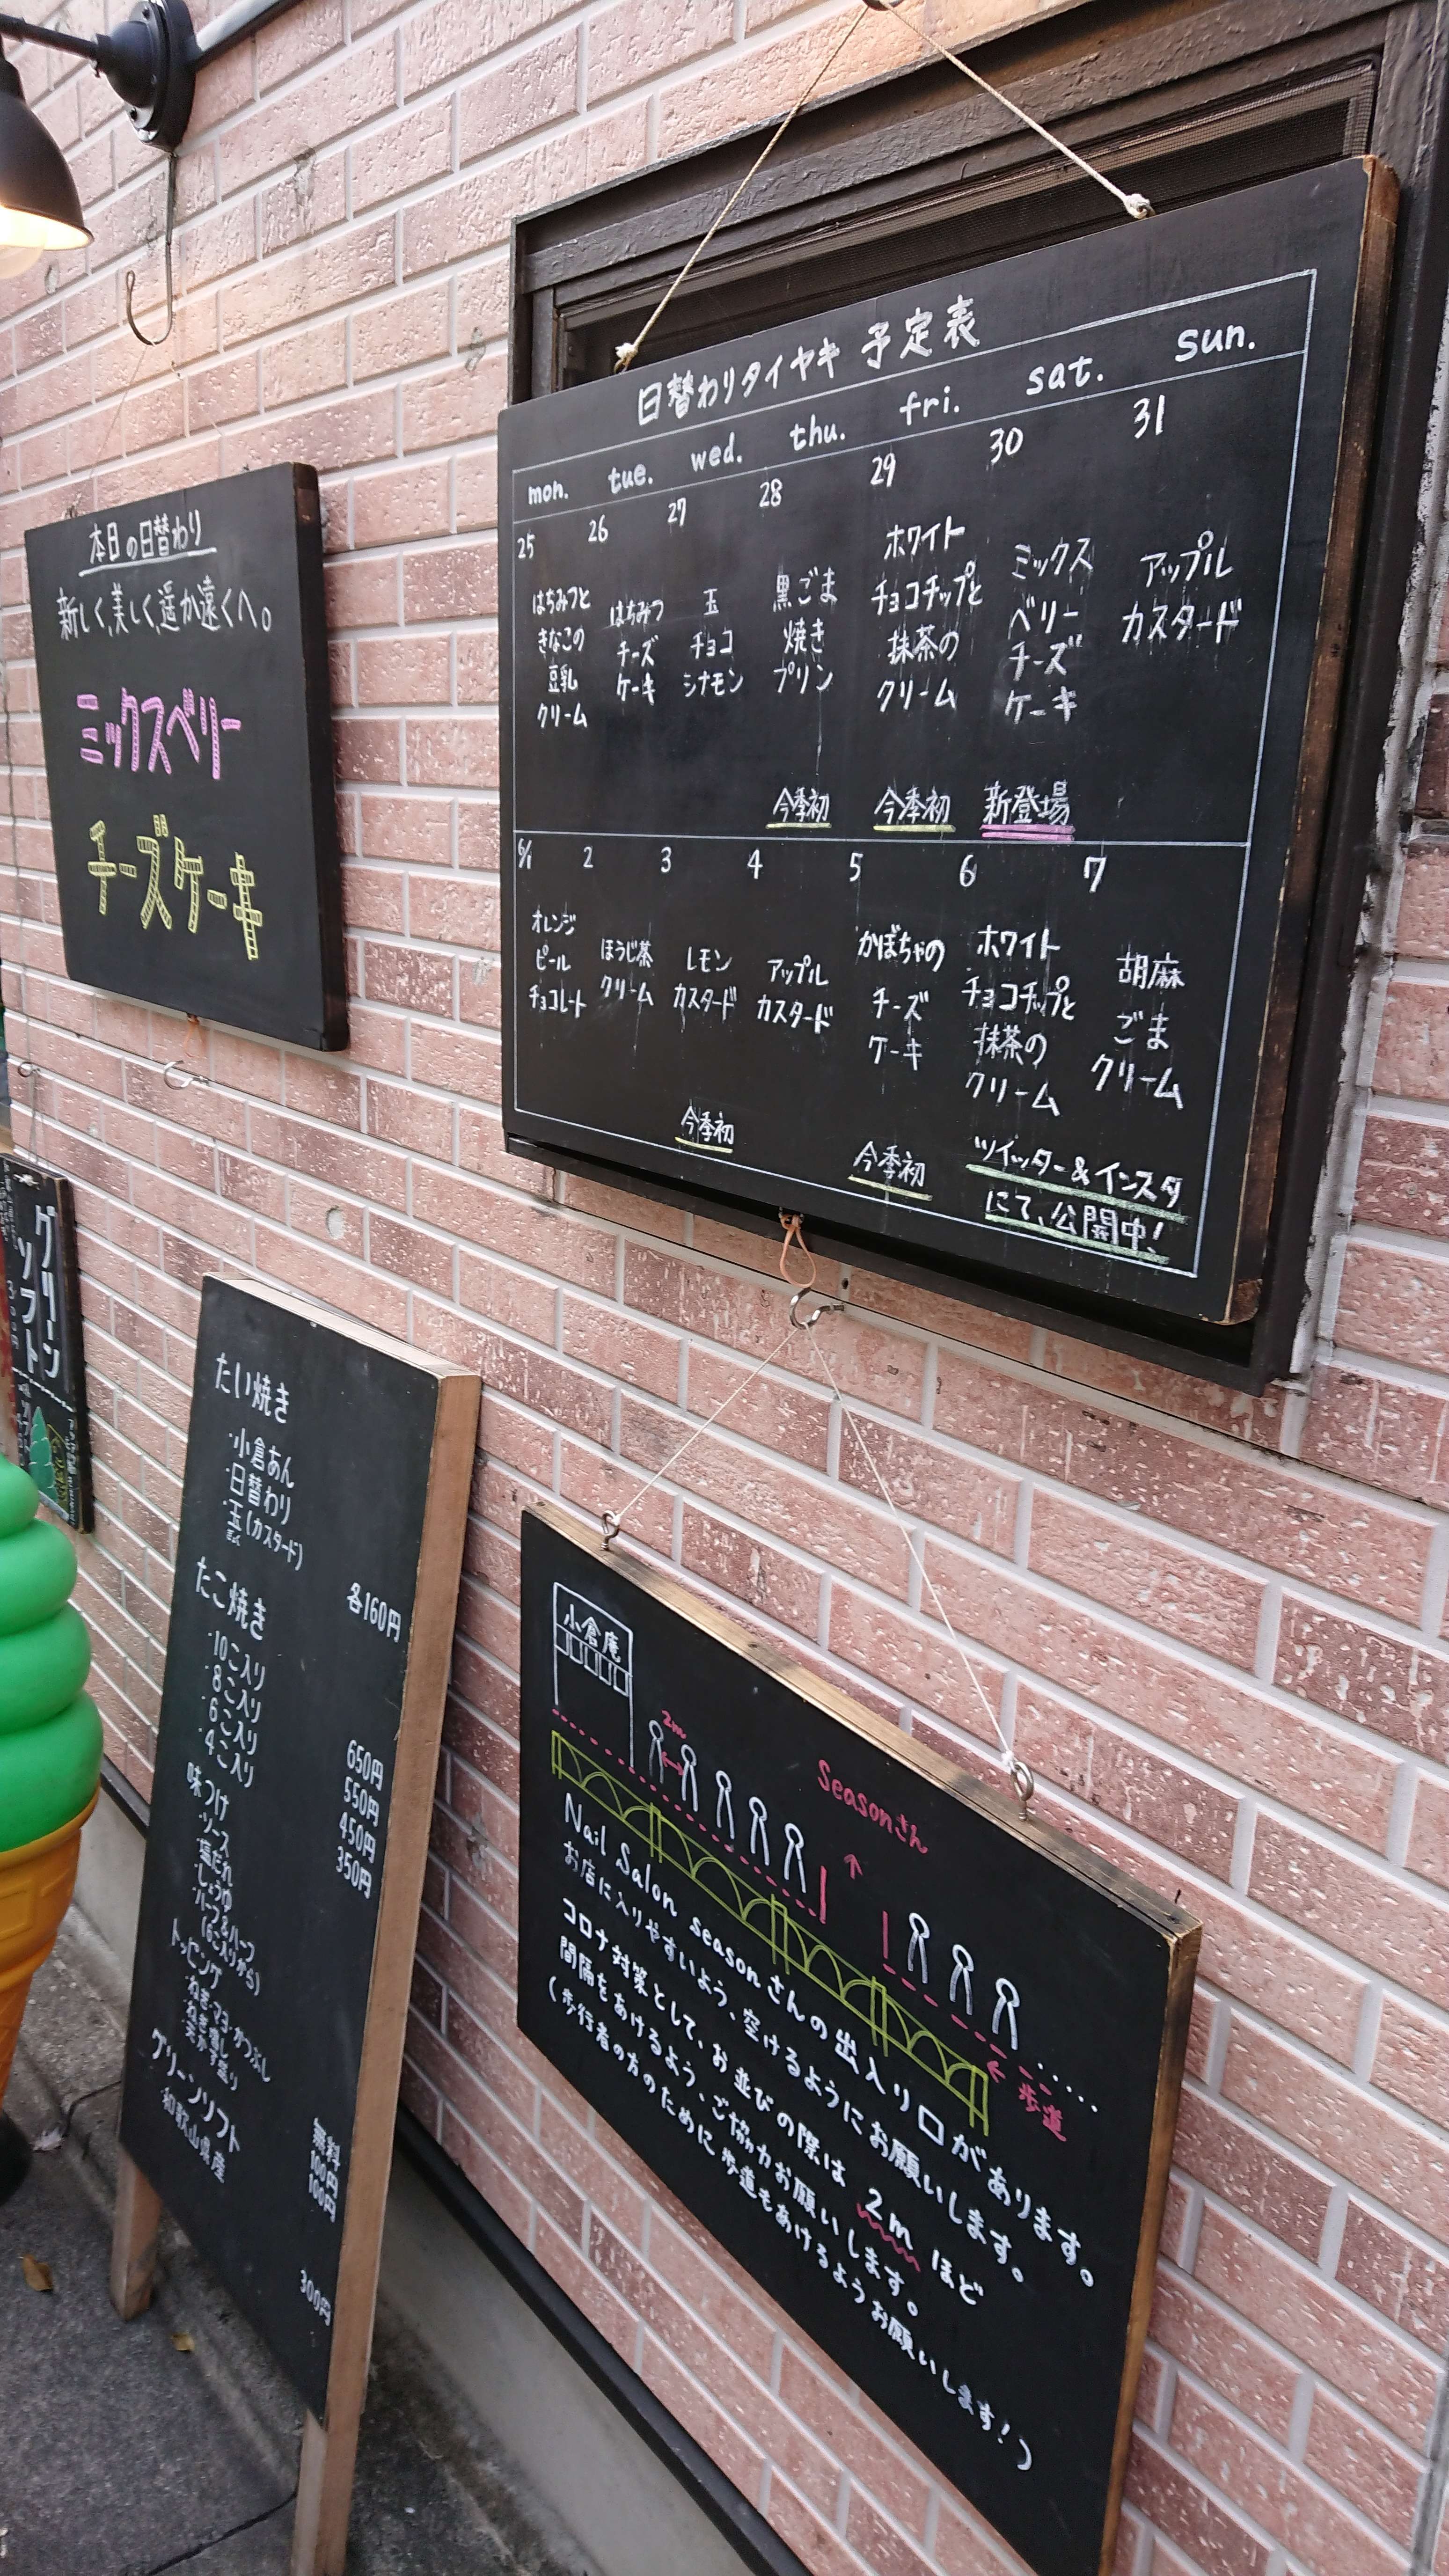 本日の日替わり
新しく、美しく、遥か遠くへ。
ミックスベリー
チーズケーキ
日替わりタイヤキ 予定表
mon. tue. wed. thu. fri. sat. sun.
25 26 27 28 29 30 31
はちみつと
きなこの
豆乳
クリーム
はちみつ
チーズ
ケーキ
玉
チョコ
シナモン
黒ごま
焼き
プリン
今季初
ホワイト
チョコチップと
抹茶の
クリーム
今季初
ミックス
ベリー
チーズ
ケーキ
新登場
アップル
カスタード
6/1 2 3 4 5 6 7
オレンジ
ピール
チョコレート
ほうじ茶
クリーム
レモン
カスタード
今季初
アップル
カスタード
かぼちゃの
チーズ
ケーキ
今季初
ホワイト
チョコチップと
抹茶の
クリーム
胡麻
ごま
クリーム
ツイッター&インスタ
にて、公開中!
グリーン
ソフト
たい焼き
・小倉あん
・日替わり
・玉(カスタード)
ぎょく
各160円
たこ焼き
・10こ入り 650円
・8こ入り 550円
・6こ入り 450円
・4こ入り 350円
味つけ
・ソース
・塩だれ
・しょうゆ
・ハーフ&ハーフ
(6こ入りから)
トッピング
・ねぎ・マヨ・かつぶし 無料
・ねぎ増し 100円
・天かす盛り 100円
グリーンソフト
和歌山県産 300円
小倉庵
2m
Seasonさん
歩道
Nail Salon seasonさんの出入り口があります。
お店に入りやすいよう、空けるようにお願いします。
コロナ対策として、お並びの際は2mほど
間隔をあけるよう、ご協力お願いします。
(歩行者の方のために歩道もあけるようお願いします!)